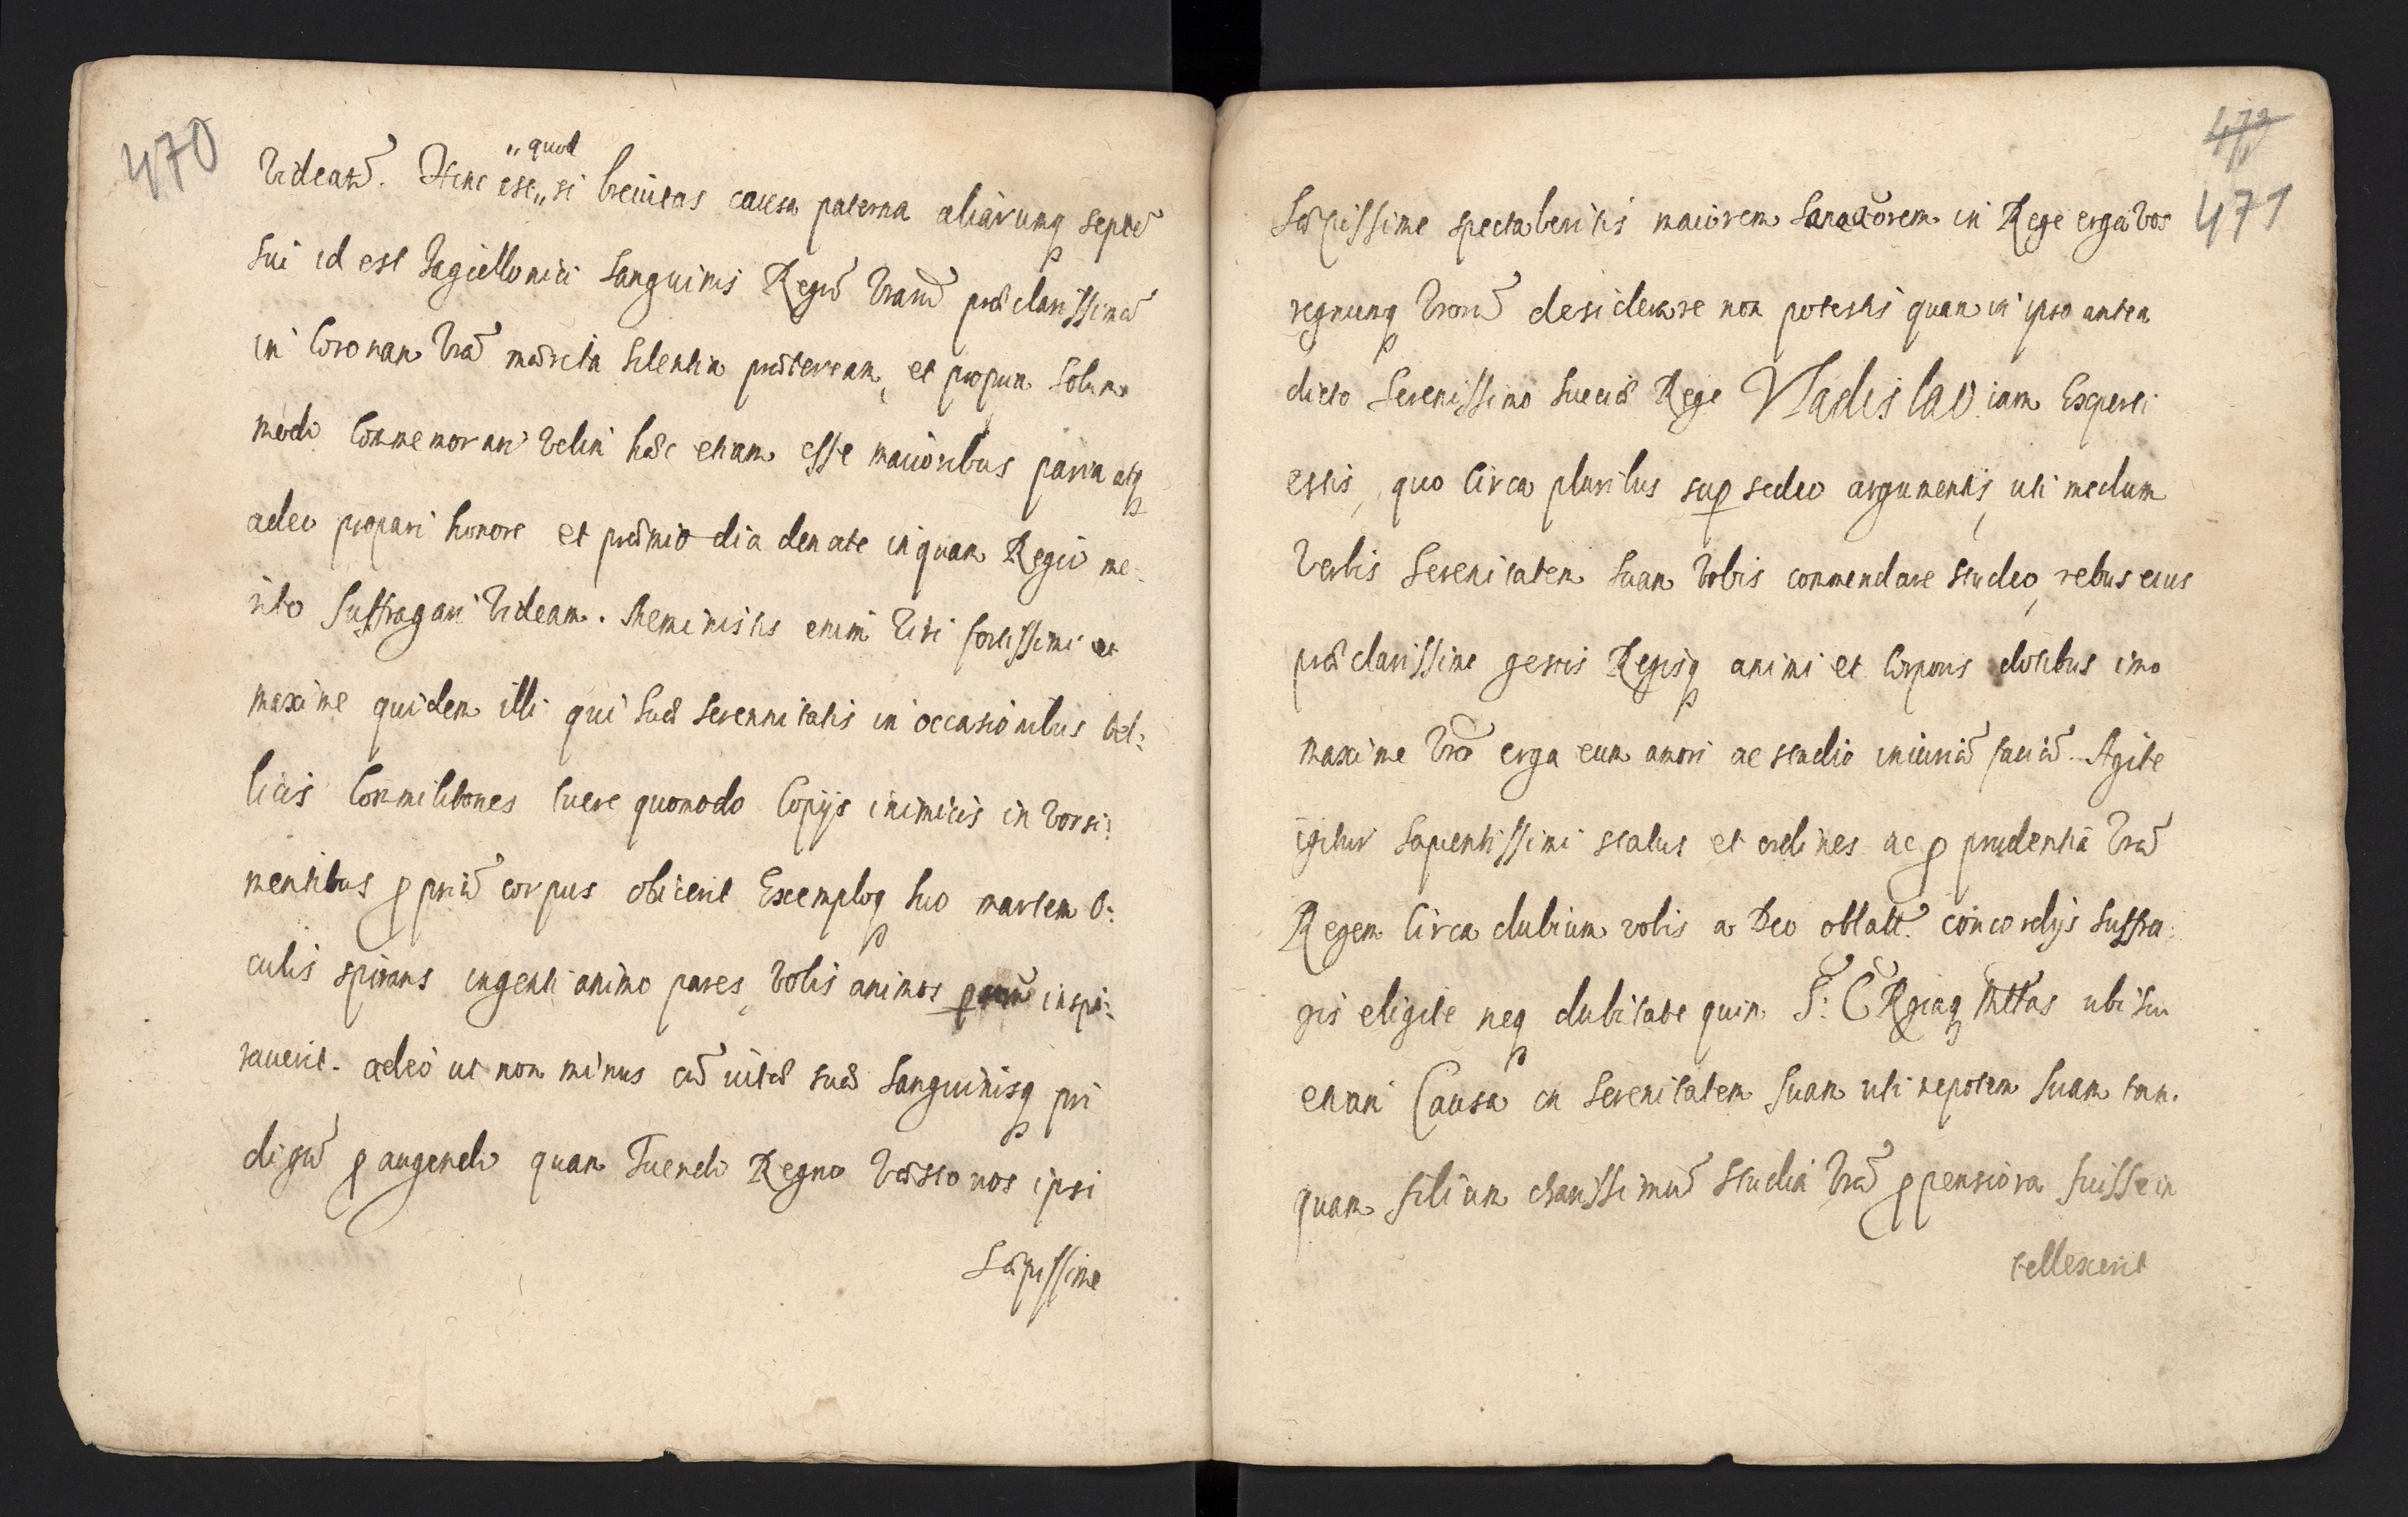 470
Videatr̃. Hinc est „quod„ si breuitas causa paterna aliarumq septẽ
sui id est Jagiellonici Sanguinis Regũ Vrarũ præclarissima
in Coronam Vrã mærita silentia præteream, et propria Solum
modo Commemorari Velim hæc etiam esse maioribus paria atq
adeo propari honore et præmio dia demate inquam Regio me-
rito Suffragari Videam. Meministis enim Viri fortissimi et
maxime quidem illi qui Suæ Serennitatis in occasionibus bel:
licis Commilitones fuere quomodo Copijs inimicis in Vorsi:
mentibus ꝓpriũ corpus obicerit Exemploq suo martem o:
culis spirans ingenti animo pares Vobis animos inspi:
rauerit. adeo ut non minus cũ uitæ suæ Sanguinisq pri
digũ ꝓ augendo quam Tuendo Regno Væstro uos ipsi
Sæpissime
472
471
Sæpissime spectaberitis maiorem Sanatorem in Rege erga Vos
regnumq Vrorũ desiderare non potestis quam in ipso antea
dicto Serenissimo Sueciæ Rege Vladislao iam Experti
estis, quo Circa pluribus suꝑ sedeo argumentis, uti me dum
Verbis Serenitatem Suam Vobis commendare studeo, rebus eius
præclarissime gestis Regisq animi et Corporis dotibus imo
maxime Vrõ erga eum amori ac studio iniuriã faciã. Agite
igitur Sapientissimi status et ordines ac ꝓ prudentia Vrã
Regem Circa dubium vobis a Deo oblatũ concordijs Suffra:
gis eligite neq dubitate quin S: C̃ Rgiaq Mttas ubi sui
etiam Causa in Serenitatem Suam uti nepotem Suam tan.
quam filium charissimũ Studia Vrã ꝓpensiora fuisse in
tellexerit